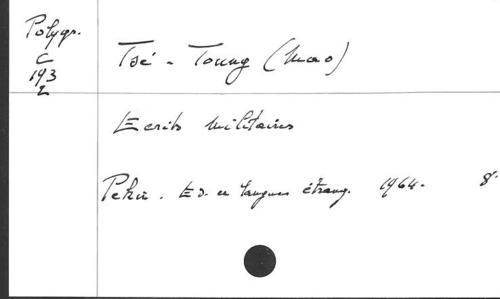 Polygr.
C
193
2
Tsé-Toung (Mao)
Ecrits militaires
Pekin. Ed. en langues étrang. 1964. 8°